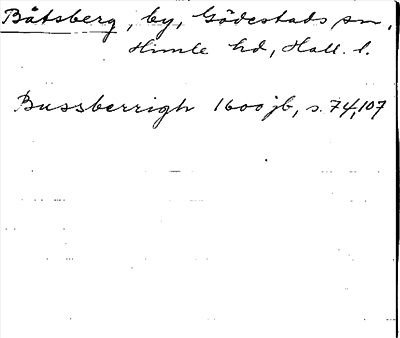 Båtsberg, by, Gödestads sn,
Himle hd, Hall. l.
Bussberrigh 1600 jb, s. 74, 107